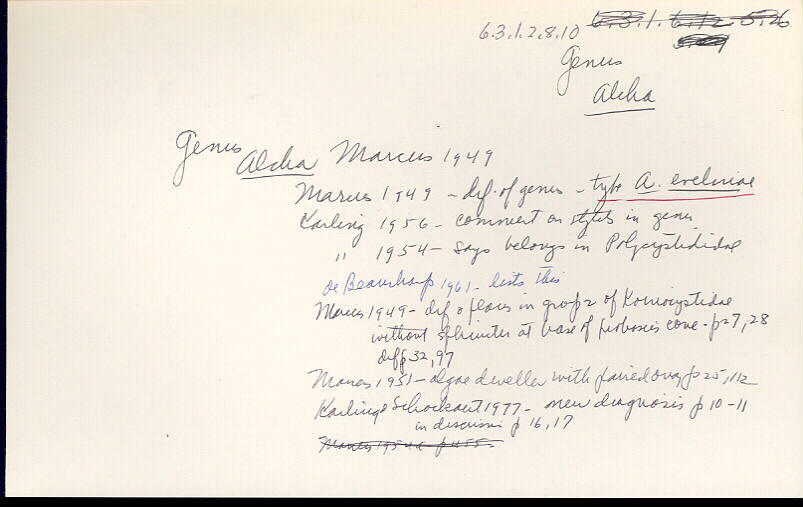 6.3.1.2.8.10 6.3.1. 6.12 5.26
Genus
Alcha
Genus
Alcha Marcus 1949
Marcus 1949 - def. of genus - type A. evelinae
Karling 1956 - comment on stylets in genus
" 1954 - says belongs in Polycystididae
de Beauchamp 1961 - lists this
Marcus 1949 - dif & places in group 2 of Koinocystidae
without sphincter at base of proboscis cone - p27, 28
diff 32, 97
Marcus 1951 - algae dweller with paired ovary p 25, 112
Karling & Schockaert 1977 - new diagnosis p 10-11
in discussi p 16, 17
Marcus 1954a - p 455